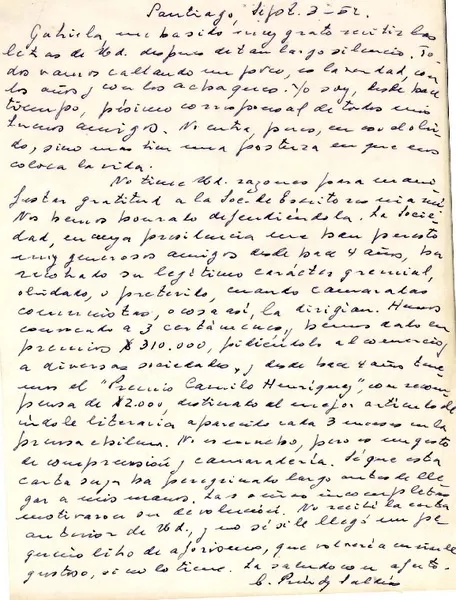 Santiago, Sept. 3-52.
Gabriela, me ha sido muy grato recibir las
letras de Ud. despues de tan largo silencio. To-
dos vamos callando un poco, es la verdad, con
los años y con los achaques. Yo soy, desde hace
tiempo, pésimo corresponsal de todos mis
buenos amigos. No entra, pues, en eso el olvi-
do, sino más bien una postura en que nos
coloca la vida.
No tiene Ud. razones para mani-
festar gratitud a la Soc. de Escritores ni a mí.
Nos hemos honrado defendiéndola. La Socie-
dad, en cuya presidencia me han puesto
muy generosos amigos desde hace 4 años, ha
recobrado su legítimo carácter gremial,
olvidado, o preterido, cuando camaradas
comunistas, o cosa así, la dirigían. Hemos
convocado a 3 certámenes, hemos dado en
premios $ 310.000, pidiéndolo al comercio y
a diversas sociedades, y desde hace 4 años tene-
mos el "Premio Camilo Henríquez", con recom-
pensa de $2.000, destinado al mejor artículo de
índole literaria aparecido cada 3 meses en la
prensa chilena. No es mucho, pero es un gesto
de comprensión y camaradería. Sé que esta
carta suya ha peregrinado largo antes de lle-
gar a mis manos. Las señas incompletas
motivaron su devolución. No recibí la carta
anterior de Ud., y no sé si le llegó un pe-
queño libro de aforismos, que volvería a enviarle
gustoso, si no lo tiene. La saluda con afecto.